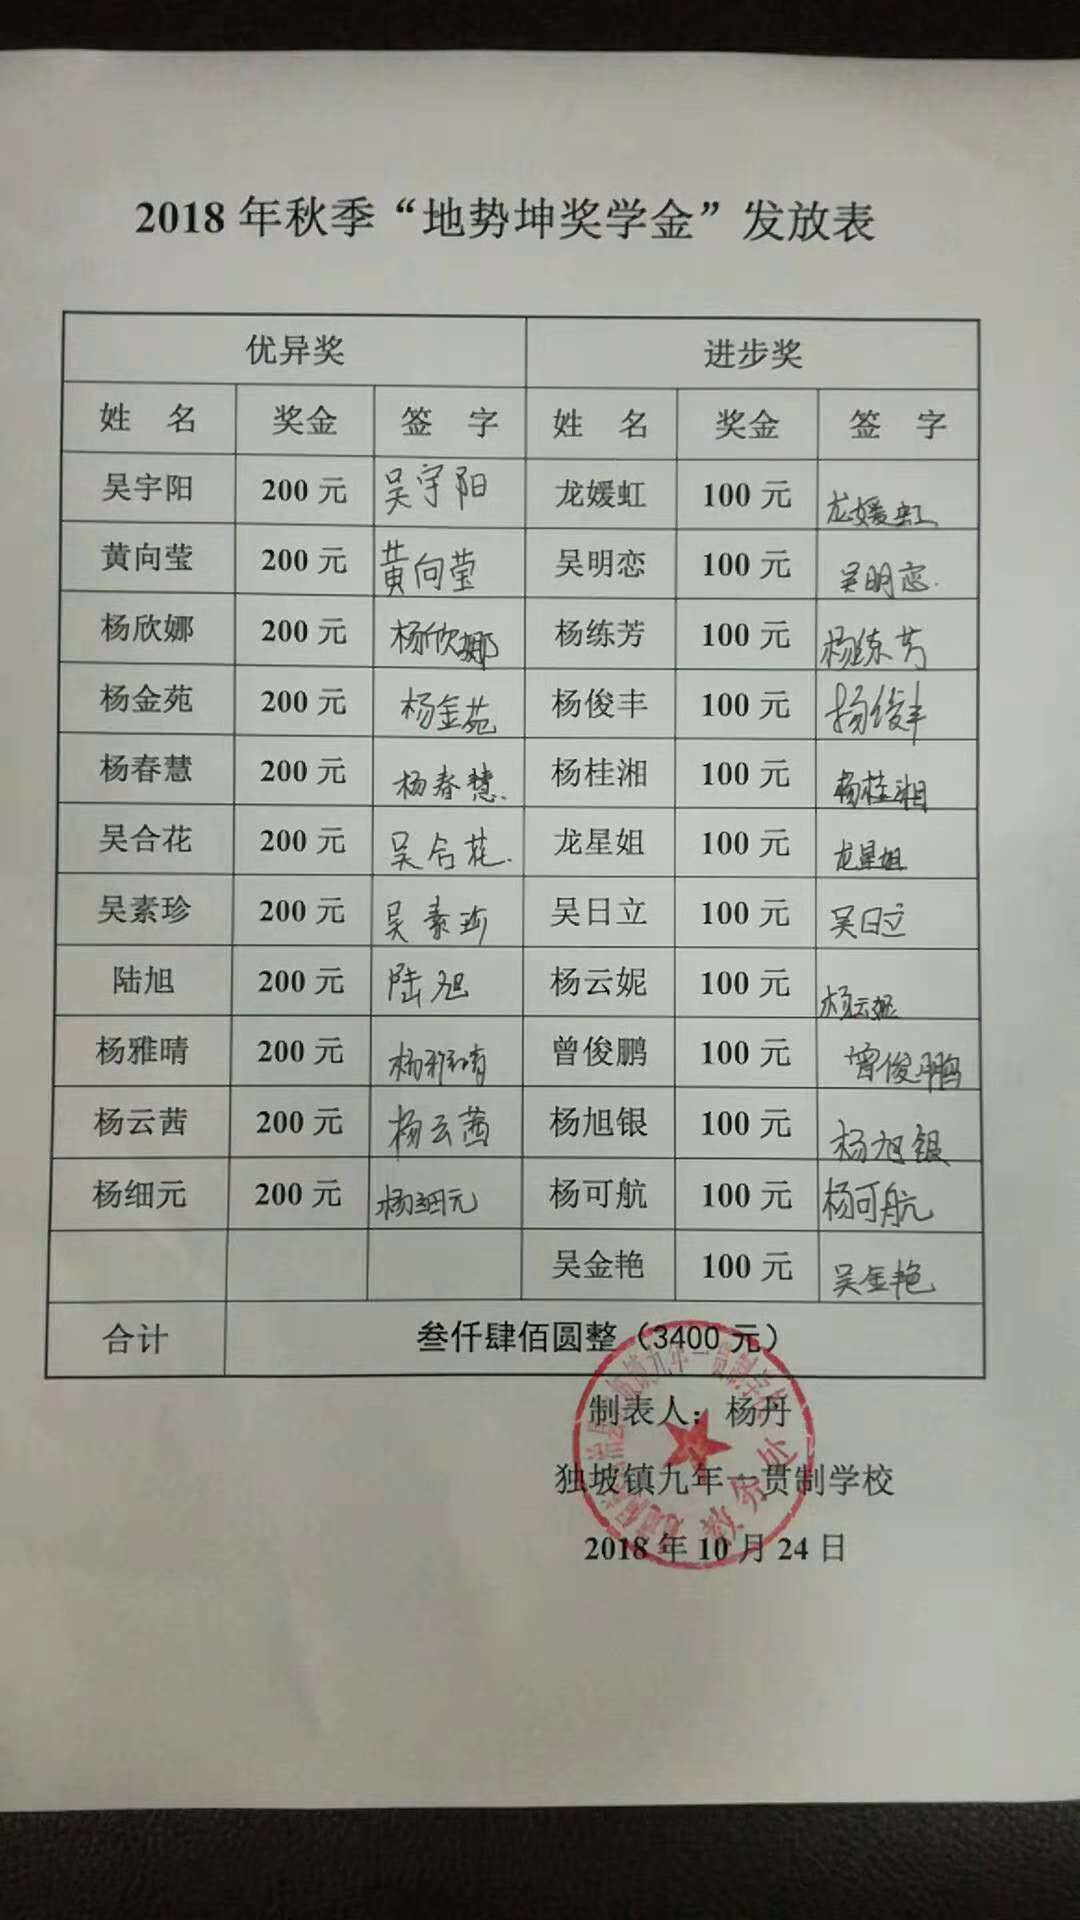 2018 年秋季“地势坤奖学金”发放表
优异奖 进步奖
姓 名 奖金 签 字 姓 名 奖金 签 字
吴宇阳 200 元 吴宇阳 龙媛虹 100 元 龙媛虹
黄向莹 200 元 黄向莹 吴明恋 100 元 吴明恋.
杨欣娜 200 元 杨欣娜 杨练芳 100 元 杨练芳
杨金苑 200 元 杨金苑 杨俊丰 100 元 杨俊丰
杨春慧 200 元 杨春慧. 杨桂湘 100 元 杨桂湘
吴合花 200 元 吴合花. 龙星姐 100 元 龙星姐
吴素珍 200 元 吴素珍 吴日立 100 元 吴日立
陆旭 200 元 陆旭 杨云妮 100 元 杨云妮
杨雅晴 200 元 杨雅晴 曾俊鹏 100 元 曾俊鹏
杨云茜 200 元 杨云茜 杨旭银 100 元 杨旭银
杨细元 200 元 杨细元 杨可航 100 元 杨可航
吴金艳 100 元 吴金艳
合计 叁仟肆佰圆整（3400 元）
制表人：杨丹
独坡镇九年一贯制学校
2018 年 10 月 24 日